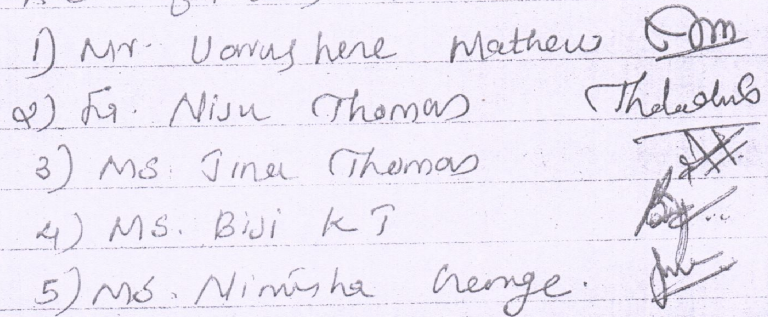 1) Mr. Varughese Mathew
2) Fr. Niju Thomas
3) Ms. Jina Thomas
4) Ms. Biji K J
5) Ms. Nimisha George.